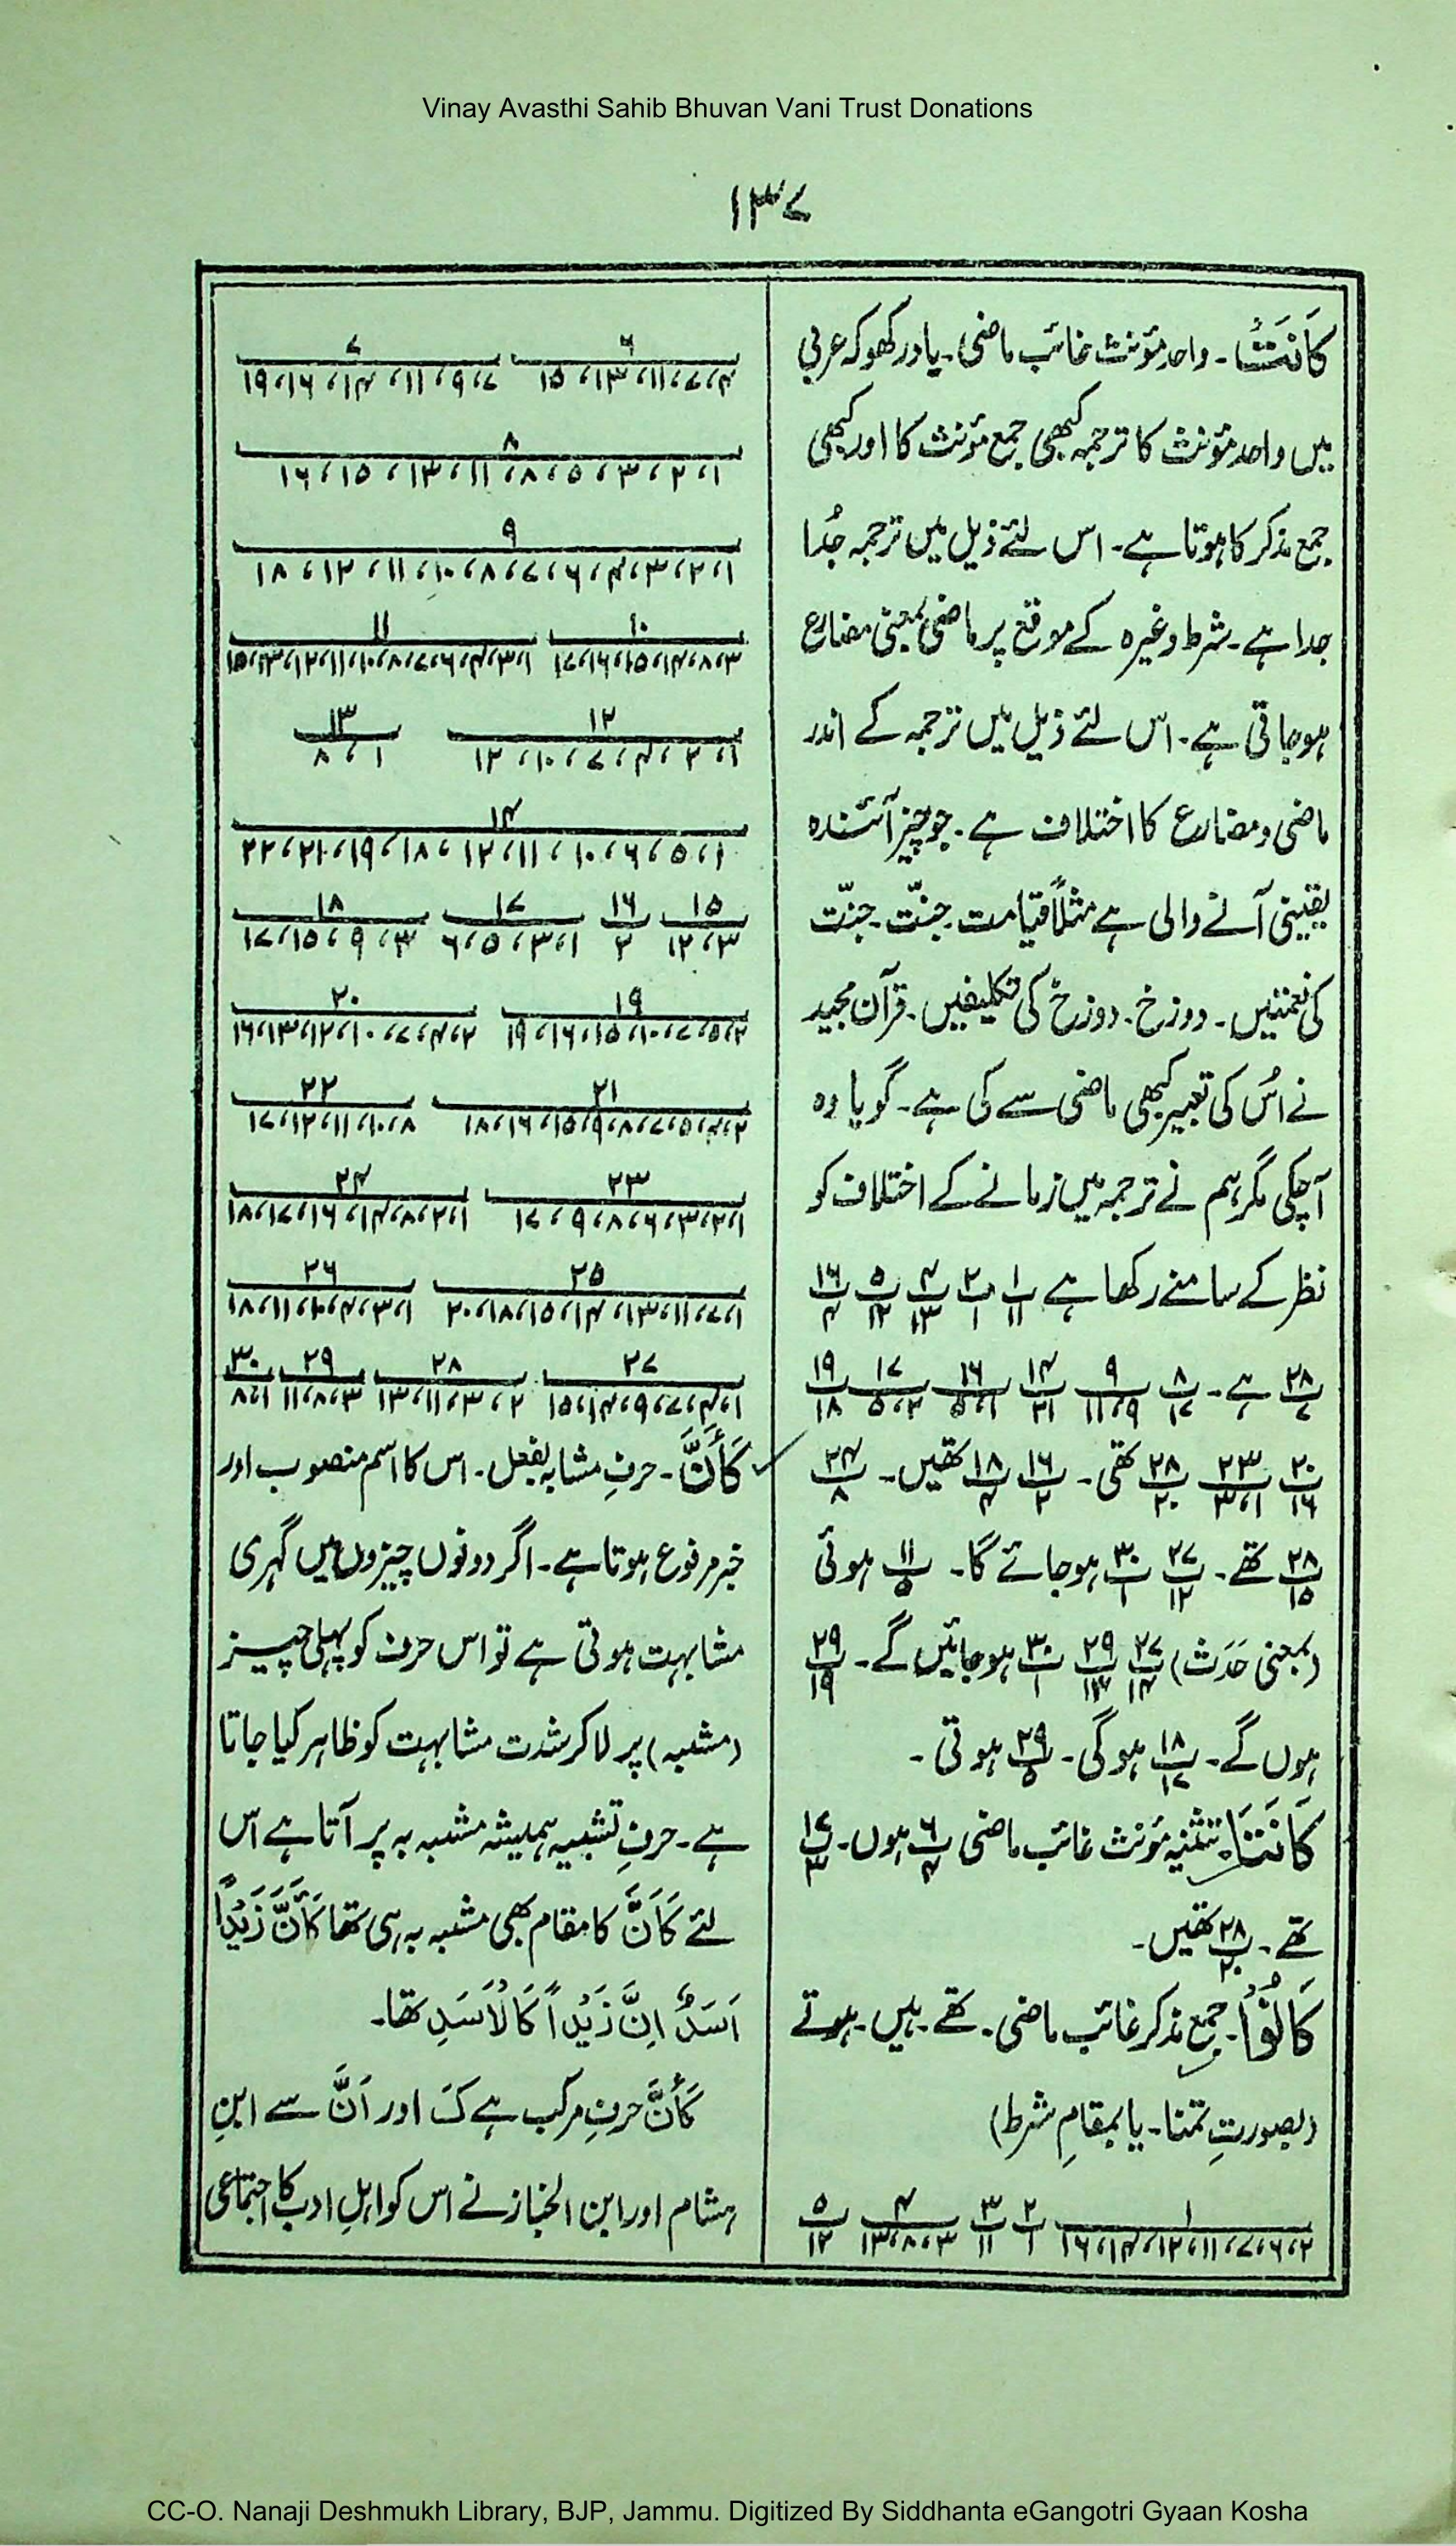 Vinay Avasthi Sahib Bhuvan Vani Trust Donations
۱۳۷
كَانَتْ ۔ واحد مؤنث غائب ماضی ۔ یاد رکھو کہ عربی
میں واحد مؤنث کا ترجمہ کبھی جمع مؤنث کا اور کبھی
جمع مذکر کا ہوتا ہے ۔ اس لئے ذیل میں ترجمہ جُدا
جدا ہے ۔ شرط وغیرہ کے موقع پر ماضی بمعنی مضارع
ہو جاتی ہے ۔ اس لئے ذیل میں ترجمہ کے اندر
ماضی و مضارع کا اختلاف ہے ۔ جو چیز آئندہ
یقینی آنے والی ہے مثلاً قیامت ۔ جنّت ۔ جنّت
کی نعمتیں ۔ دوزخ ۔ دوزخ کی تکلیفیں ۔ قرآن مجید
نے اُس کی تعبیر کبھی ماضی سے کی ہے ۔ گویا وہ
آچکی مگر ہم نے ترجمہ میں زمانے کے اختلاف کو
نظر کے سامنے رکھا ہے ۱/۱۱ ۲/۱ ۴/۱۳ ۵/۱۲ ۱۶/۴
۲۸/۷ ہے ۔ ۸/۱۷ ۹/۹،۱۱ ۱۴/۲۱ ۱۶/۱،۵ ۱۷/۲،۵ ۱۹/۱۸
۲۰/۱۶ ۲۳/۱،۳ ۲۸/۲۰ تھی ۔ ۱۶/۲ ۱۸/۴ تھیں ۔ ۲۴/۸
۲۸/۱۵ تھے ۔ ۲۷/۱۲ ۳۰/۱ ہو جائے گا ۔ ۱۱/۵ ہوئی
(بمعنی حَدَث) ۲۷/۱۴ ۲۹/۱۳ ۳۰/۱ ہو جائیں گے ۔ ۲۹/۱۹
ہوں گے ۔ ۱۸/۱۷ ہوگی ۔ ۲۹/۵ ہوتی ۔
كَانَتَا ۔ تثنیہ مؤنث غائب ماضی ۶/۴ ہوں ۔ ۱۷/۳
تھے ۔ ۲۸/۲۰ تھیں ۔
كَانُوْا ۔ جمع مذکر غائب ماضی ۔ تھے ۔ ہیں ۔ ہوتے
(بصورتِ تمنا ۔ یا بمقامِ شرط)
۱/۲،۶،۷،۱۱،۱۲،۱۴،۱۶ ۲/۱ ۳/۱۱ ۴/۳،۸،۱۳ ۵/۱۲
۶/۴،۷،۱۱،۱۳،۱۵ ۷/۷،۹،۱۱،۱۴،۱۶،۱۹
۸/۱،۲،۳،۵،۸،۱۱،۱۳،۱۵،۱۶
۹/۱،۲،۳،۴،۶،۷،۸،۱۰،۱۱،۱۲،۱۸
۱۰/۳،۸،۱۴،۱۵،۱۶،۱۷ ۱۱/۱،۳،۴،۶،۷،۸،۱۰،۱۱،۱۲،۱۳،۱۵
۱۲/۱،۲،۴،۷،۱۰،۱۲ ۱۳/۱،۸
۱۴/۱،۵،۶،۱۰،۱۱،۱۲،۱۸،۱۹،۲۱،۲۲
۱۵/۳،۱۲ ۱۶/۲ ۱۷/۱،۳،۵،۶ ۱۸/۳،۹،۱۵،۱۷
۱۹/۲،۵،۷،۱۰،۱۵،۱۶،۱۹ ۲۰/۲،۴،۷،۱۰،۱۲،۱۳،۱۶
۲۱/۲،۴،۵،۷،۸،۹،۱۵،۱۶،۱۸ ۲۲/۸،۱۰،۱۱،۱۲،۱۷
۲۳/۱،۲،۳،۶،۸،۹،۱۷ ۲۴/۱،۲،۸،۱۴،۱۶،۱۷،۱۸
۲۵/۱،۷،۱۱،۱۳،۱۴،۱۵،۱۸،۲۰ ۲۶/۱،۳،۴،۲،۱۱،۱۸
۲۷/۱،۴،۷،۹،۱۴،۱۵ ۲۸/۲،۳،۱۱،۱۳ ۲۹/۳،۸،۱۱ ۳۰/۱،۸
كَأَنَّ ۔ حرفِ مشابہ بفعل ۔ اس کا اسم منصوب اور
خبر مرفوع ہوتا ہے ۔ اگر دونوں چیزوں میں گہری
مشابہت ہوتی ہے تو اس حرف کو پہلی چیز
(مشبہ) پر لا کر شدت مشابہت کو ظاہر کیا جاتا
ہے ۔ حرفِ تشبیہ ہمیشہ مشبہ بہ پر آتا ہے اس
لئے كَاَنَّ کا مقام بھی مشبہ بہ ہی تھا كَأَنَّ زَيْدًا
اَسَدٌ اِنَّ زَيْدًا كَالْاَسَدِ تھا ۔
كَأَنَّ حرفِ مرکب ہے كَ اور اَنَّ سے ابنِ
ہشام اور ابن الخباز نے اس کو اہلِ ادب کا اجتماعی
CC-O. Nanaji Deshmukh Library, BJP, Jammu. Digitized By Siddhanta eGangotri Gyaan Kosha